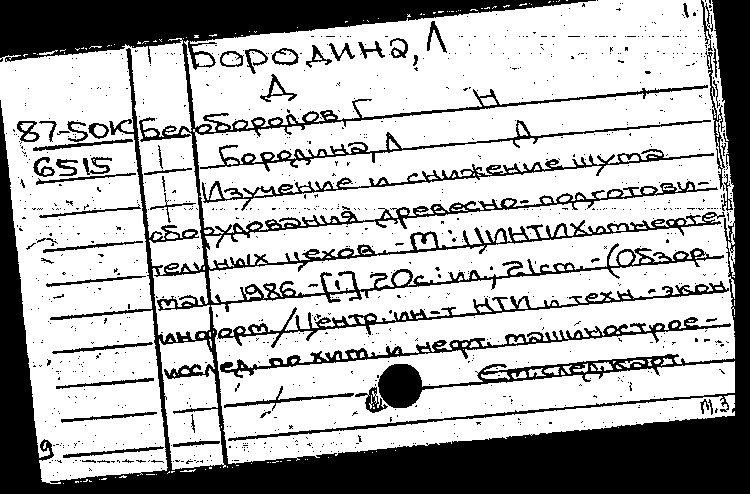 1.
Бородина, Л
Д
87-50К Белобородов, Г Н
6515 Бородина, Л Д
Изучение и снижение шума
оборудования древесно-подготови-
тельных цехов. - М.: ЦИНТИХимнефте-
маш, 1986. - [1], 20с.: ил.; 21см. - (Обзор.
информ. / Центр. ин-т НТИ и техн.-экон
исслед. по хим. и нефт. машинострое-
См. след. карт.
М.З.
9